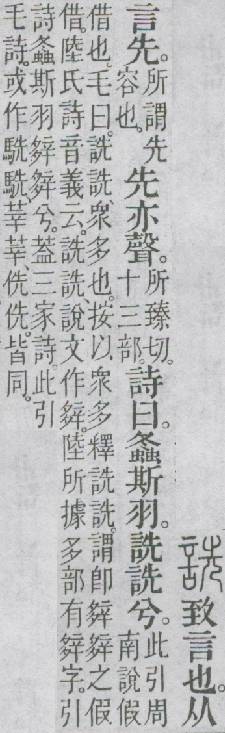 詵致言也。从
言先。所謂先容也。先亦聲。所臻切。十三部。詩曰。螽斯羽。詵詵兮。此引周南說假
借也。毛曰。詵詵、衆多也。按以衆多釋詵詵。謂卽𨐔𨐔之假
借。陸氏詩音義云。詵詵、說文作𨐔。陸所據多部有𨐔字。引
詩螽斯羽𨐔𨐔兮。葢三家詩。此引
毛詩。或作駪駪、莘莘、侁侁。皆同。